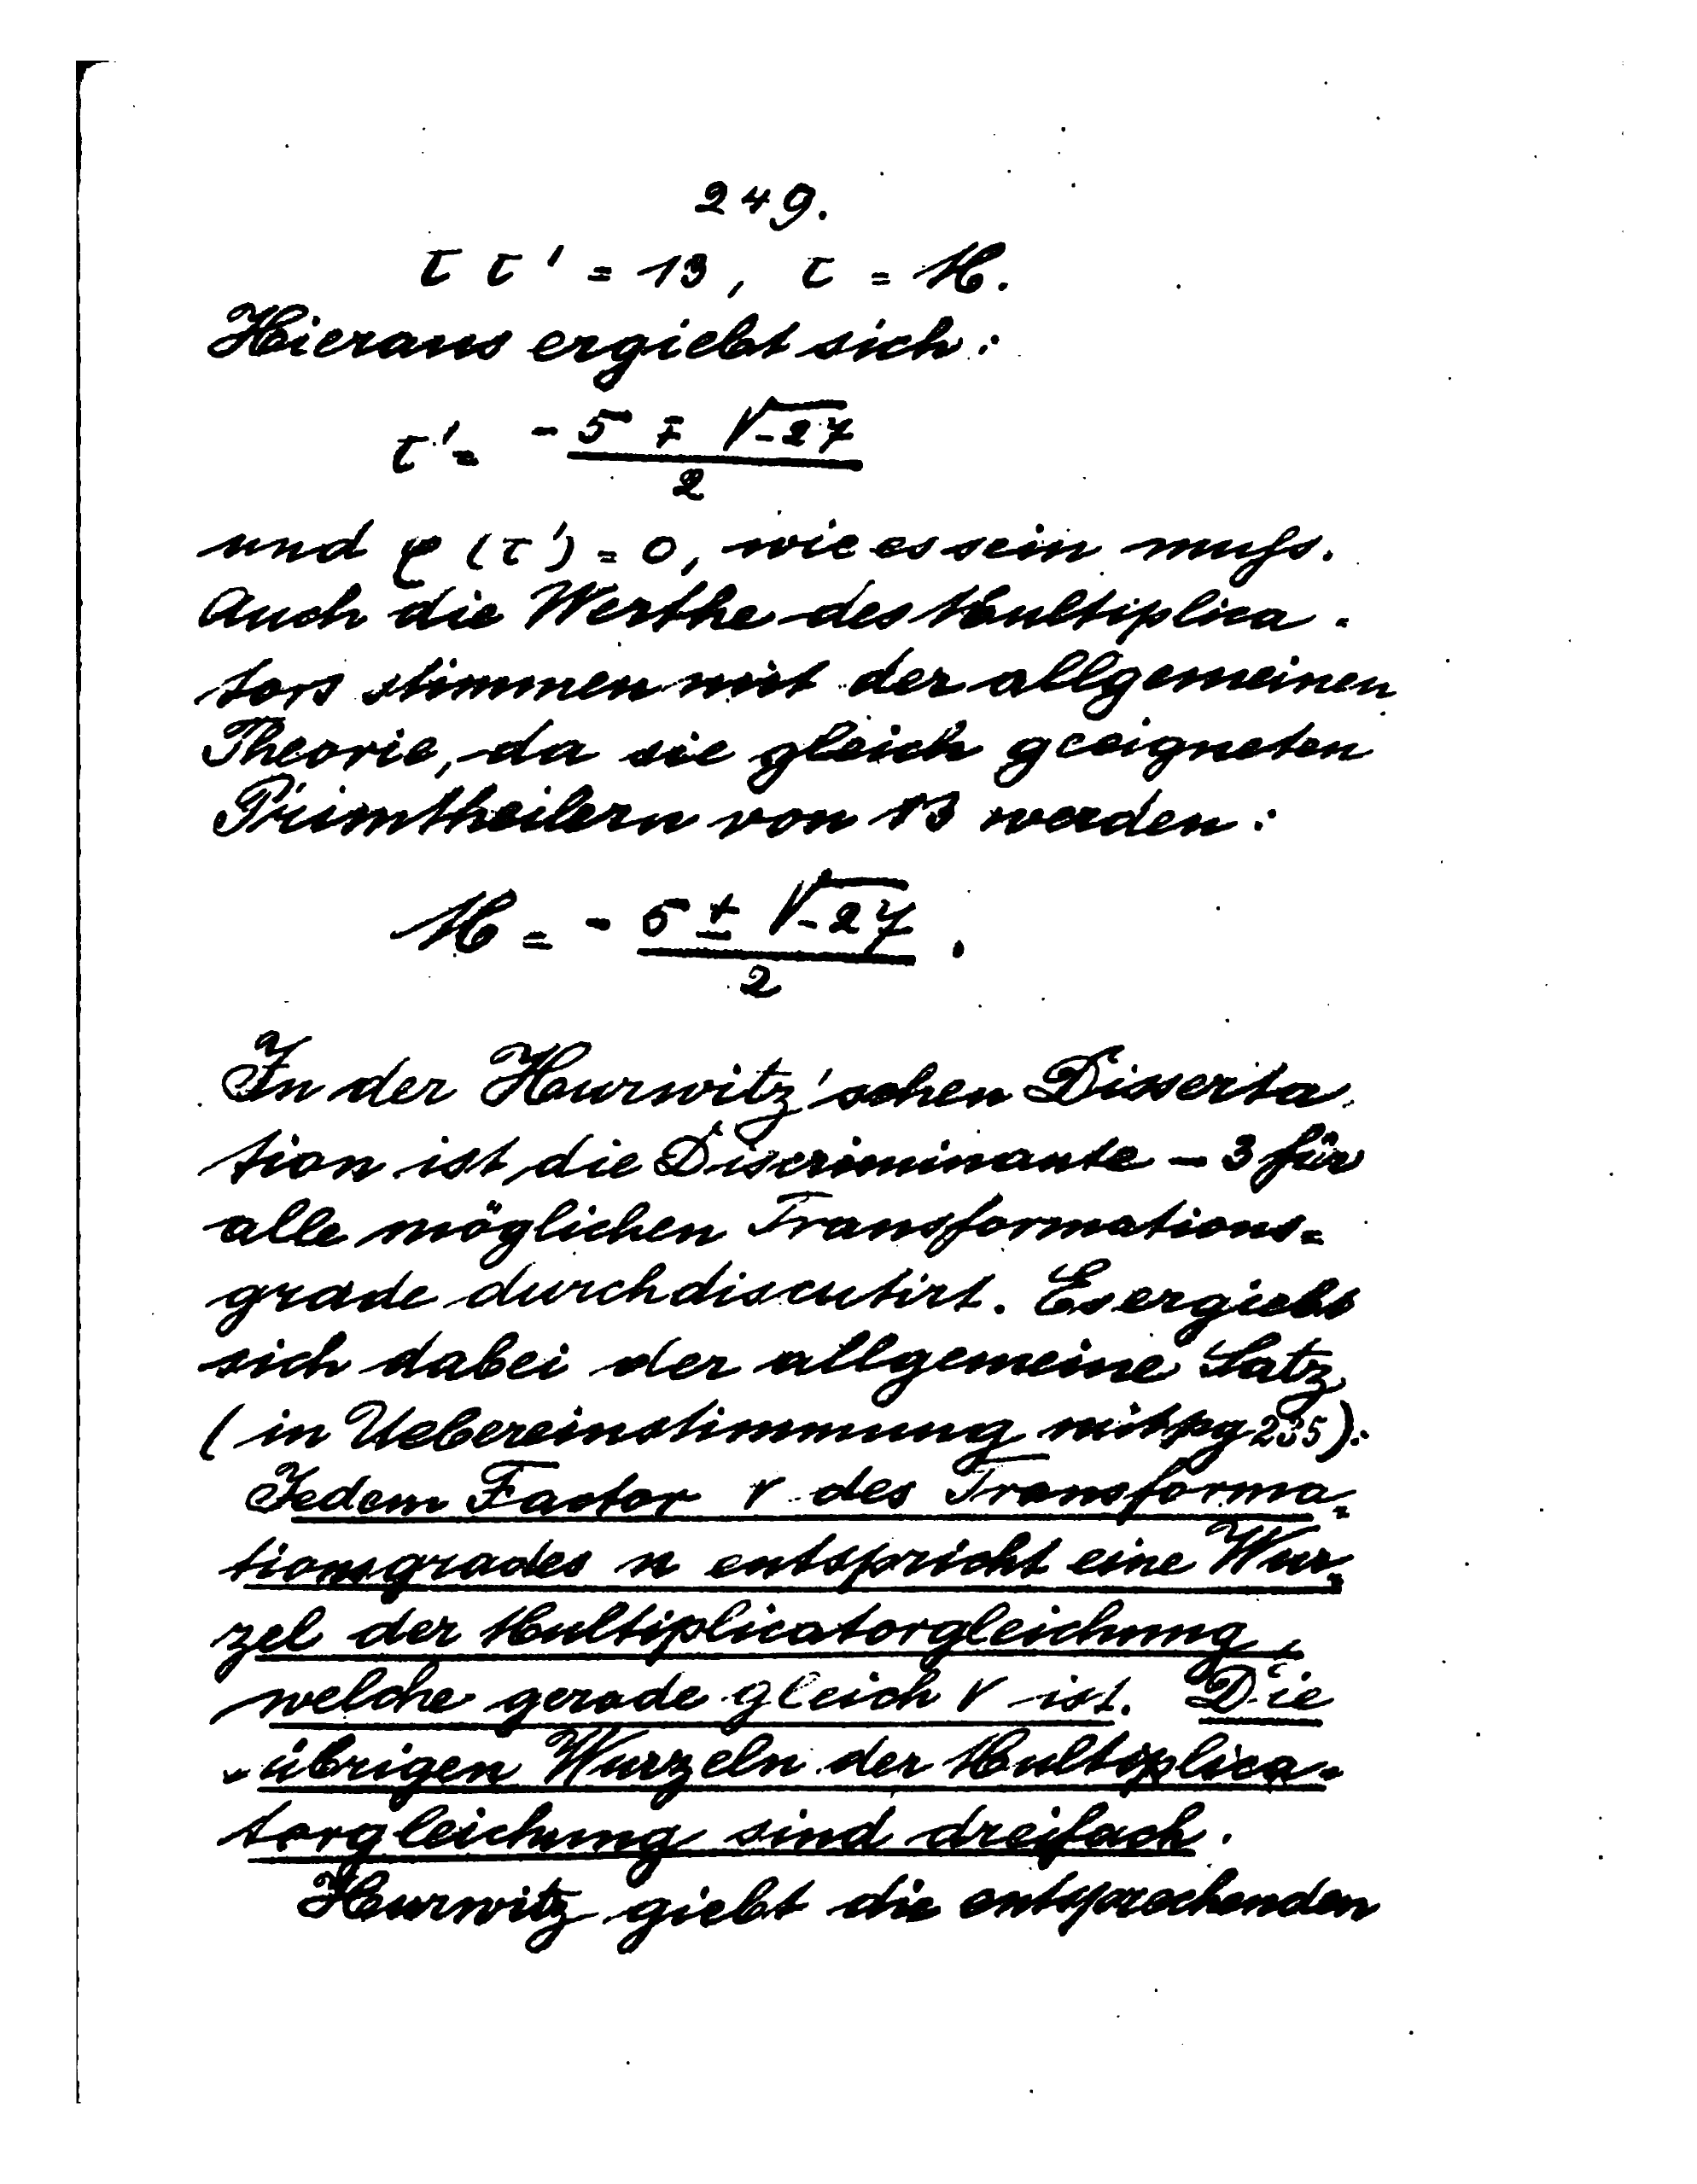 249.
τ τ' = 13, τ = M.
Hieraus ergiebt sich:
τ' = (-5 ∓ √-27)/2
und φ(τ') = 0, wie es sein muſs.
Auch die Werthe des Multiplica-
tors stimmen mit der allgemeinen
Theorie, da sie gleich geeigneten
Primtheilern von 13 werden:
M = - (5 ± √-27)/2 .
In der Hurwitz'schen Disserta-
tion ist die Discriminante - 3 für
alle möglichen Transformations=
grade durchdiscutirt. Es ergiebt
sich dabei der allgemeine Satz
(in Uebereinstimmung mit pg 235):
Jedem Factor r des Transforma=
tionsgrades n entspricht eine Wur=
zel der Multiplicatorgleichung,
welche gerade gleich r ist. Die
übrigen Wurzeln der Multiplica=
torgleichung sind dreifach.
Hurwitz giebt die entsprechenden